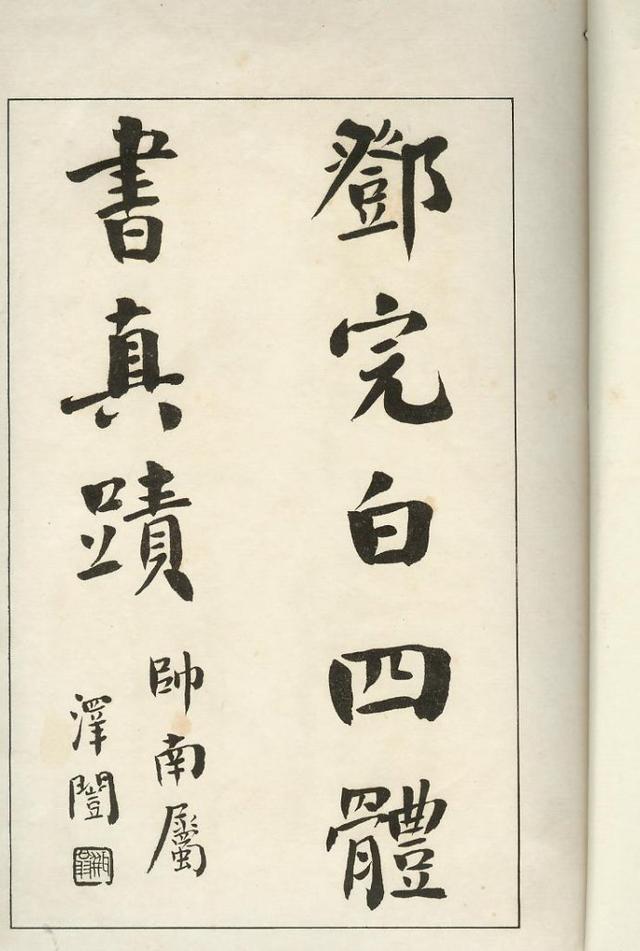 鄧完白四體
書真蹟
帥南屬
澤闓